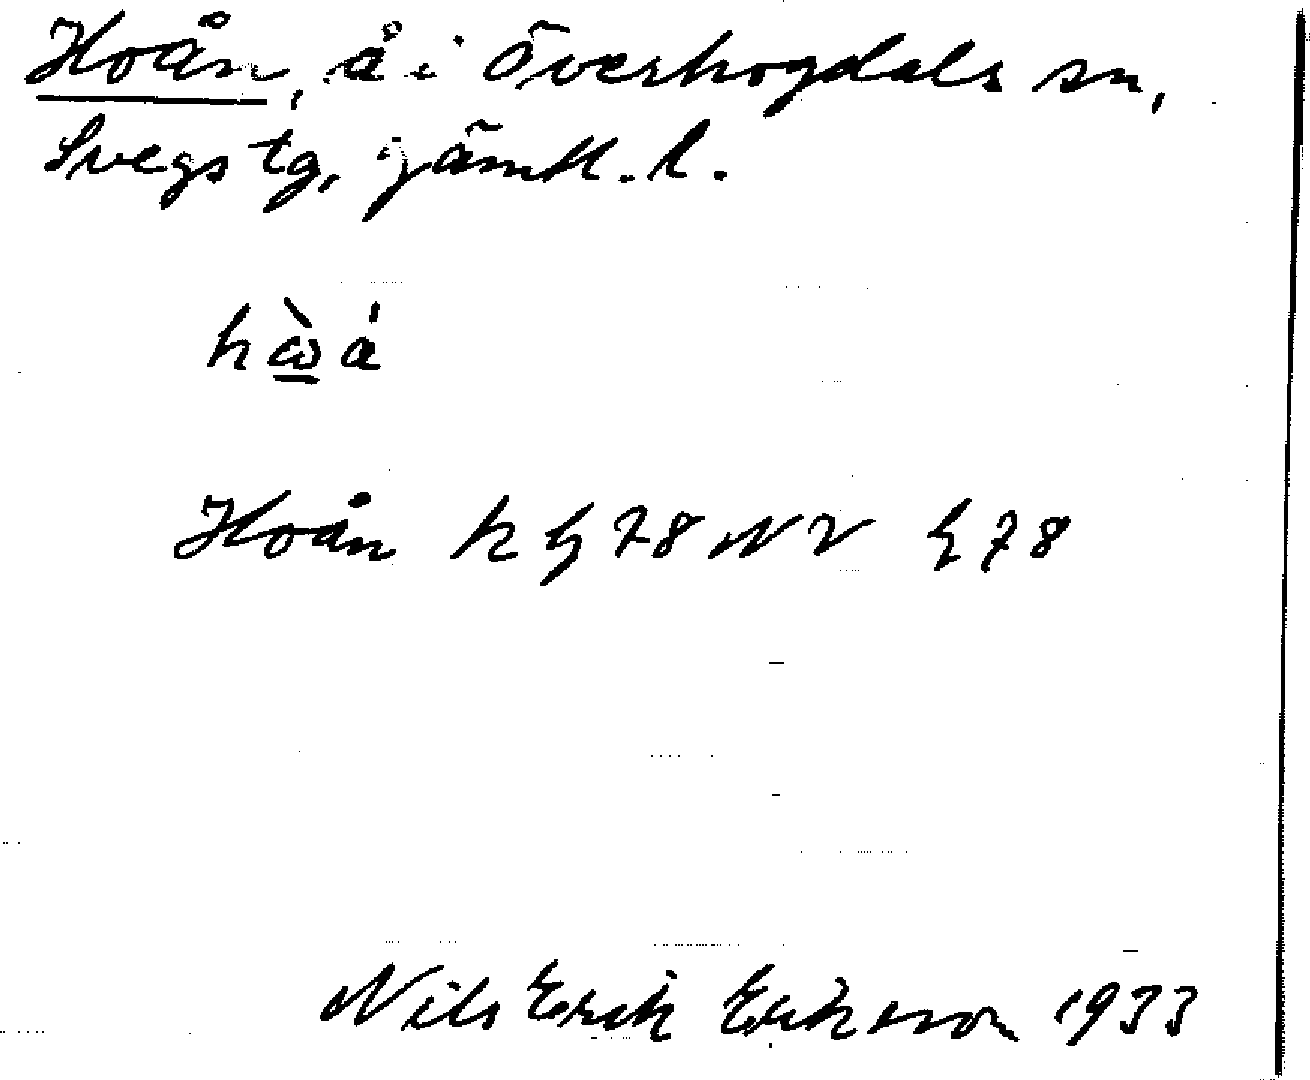 Hoån, å i Överhogdals sn,
Svegs tg, Jämtl. l.
hὼ̲á
Hoån k h 78 NV h 78
Nils Erik Eriksson 1933